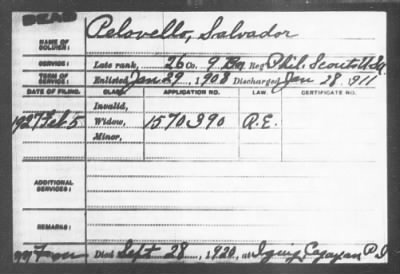 DEAD
NAME OF SOLDIER: Pelovello, Salvador
SERVICE: Late rank, 26 Co. 9 Bn Reg't Phil. Scouts U.S.A.
TERM OF SERVICE: Enlisted Jan 29, 1908 Discharged Jan 28, 911
DATE OF FILING. CLASS. APPLICATION NO. LAW. CERTIFICATE NO.
Invalid,
1927 Feb 5 Widow, 1570390 R.E.
Minor,
ADDITIONAL SERVICES:
REMARKS:
Died Sept 28, 1920, at Iguig, Cagayan P.I.